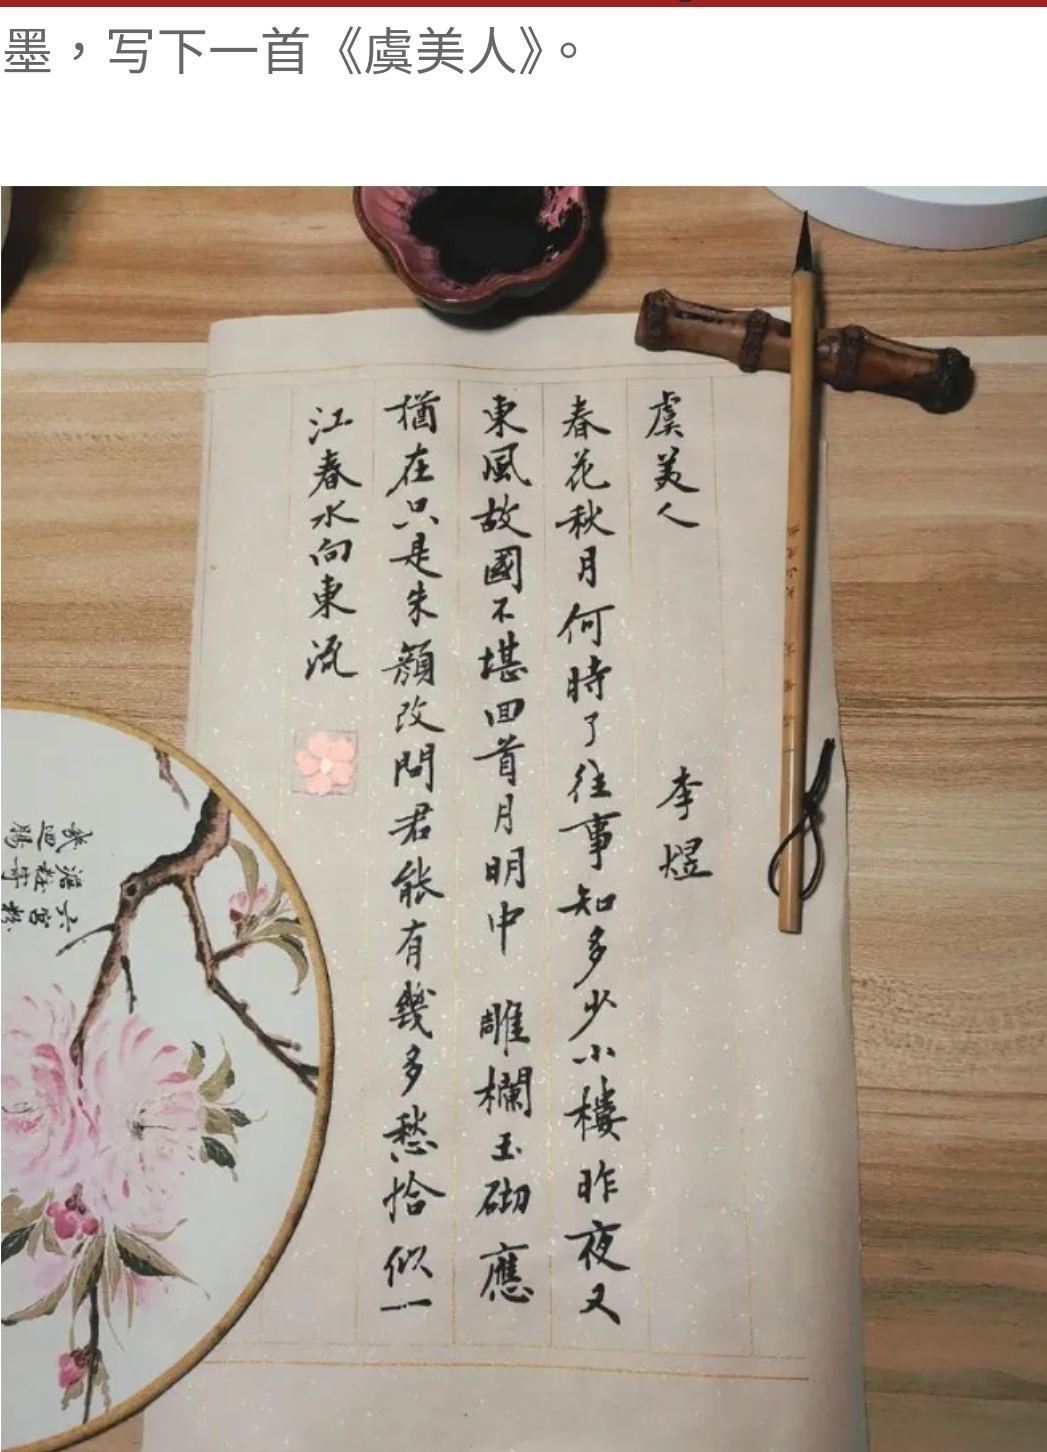 墨，写下一首《虞美人》。
虞美人 李煜
春花秋月何時了往事知多少小樓昨夜又
東風故國不堪回首月明中 雕欄玉砌應
猶在只是朱顏改問君能有幾多愁恰似一
江春水向東流